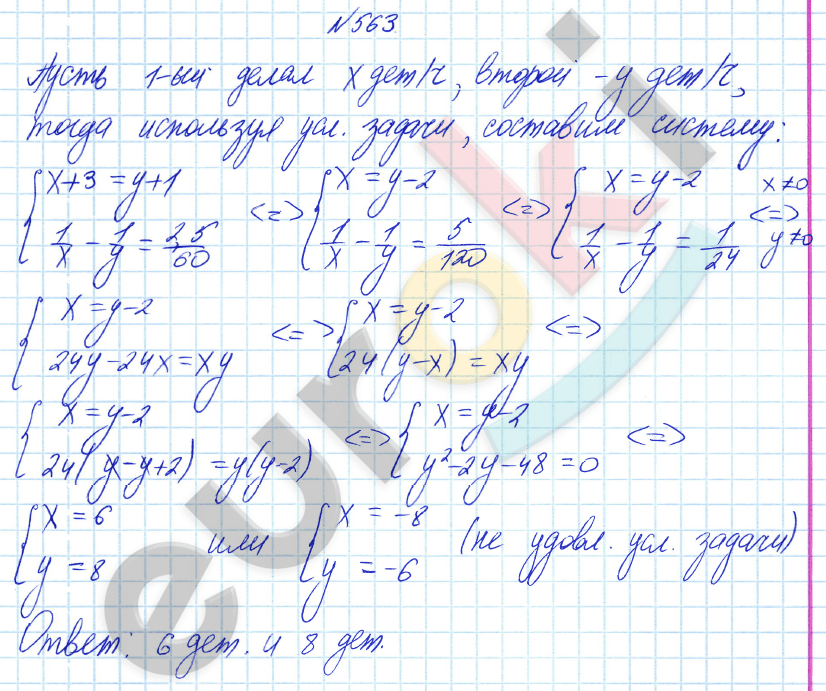 №563
Пусть 1-ый делал x дет/ч, второй - y дет/ч,
тогда используя усл. задачи, составим систему:
{ x+3 = y+1 <=> { x = y-2 <=> { x = y-2 x≠0
1/x - 1/y = 2,5/60 1/x - 1/y = 5/120 1/x - 1/y = 1/24 y≠0 <=>
{ x = y-2 <=> { x = y-2 <=>
24y-24x = xy 24(y-x) = xy
{ x = y-2 <=> { x = y-2 <=>
24(y-y+2) = y(y-2) y²-2y-48 = 0
{ x = 6 или { x = -8 (не удовл. усл. задачи)
y = 8 y = -6
Ответ: 6 дет. и 8 дет.
euroki